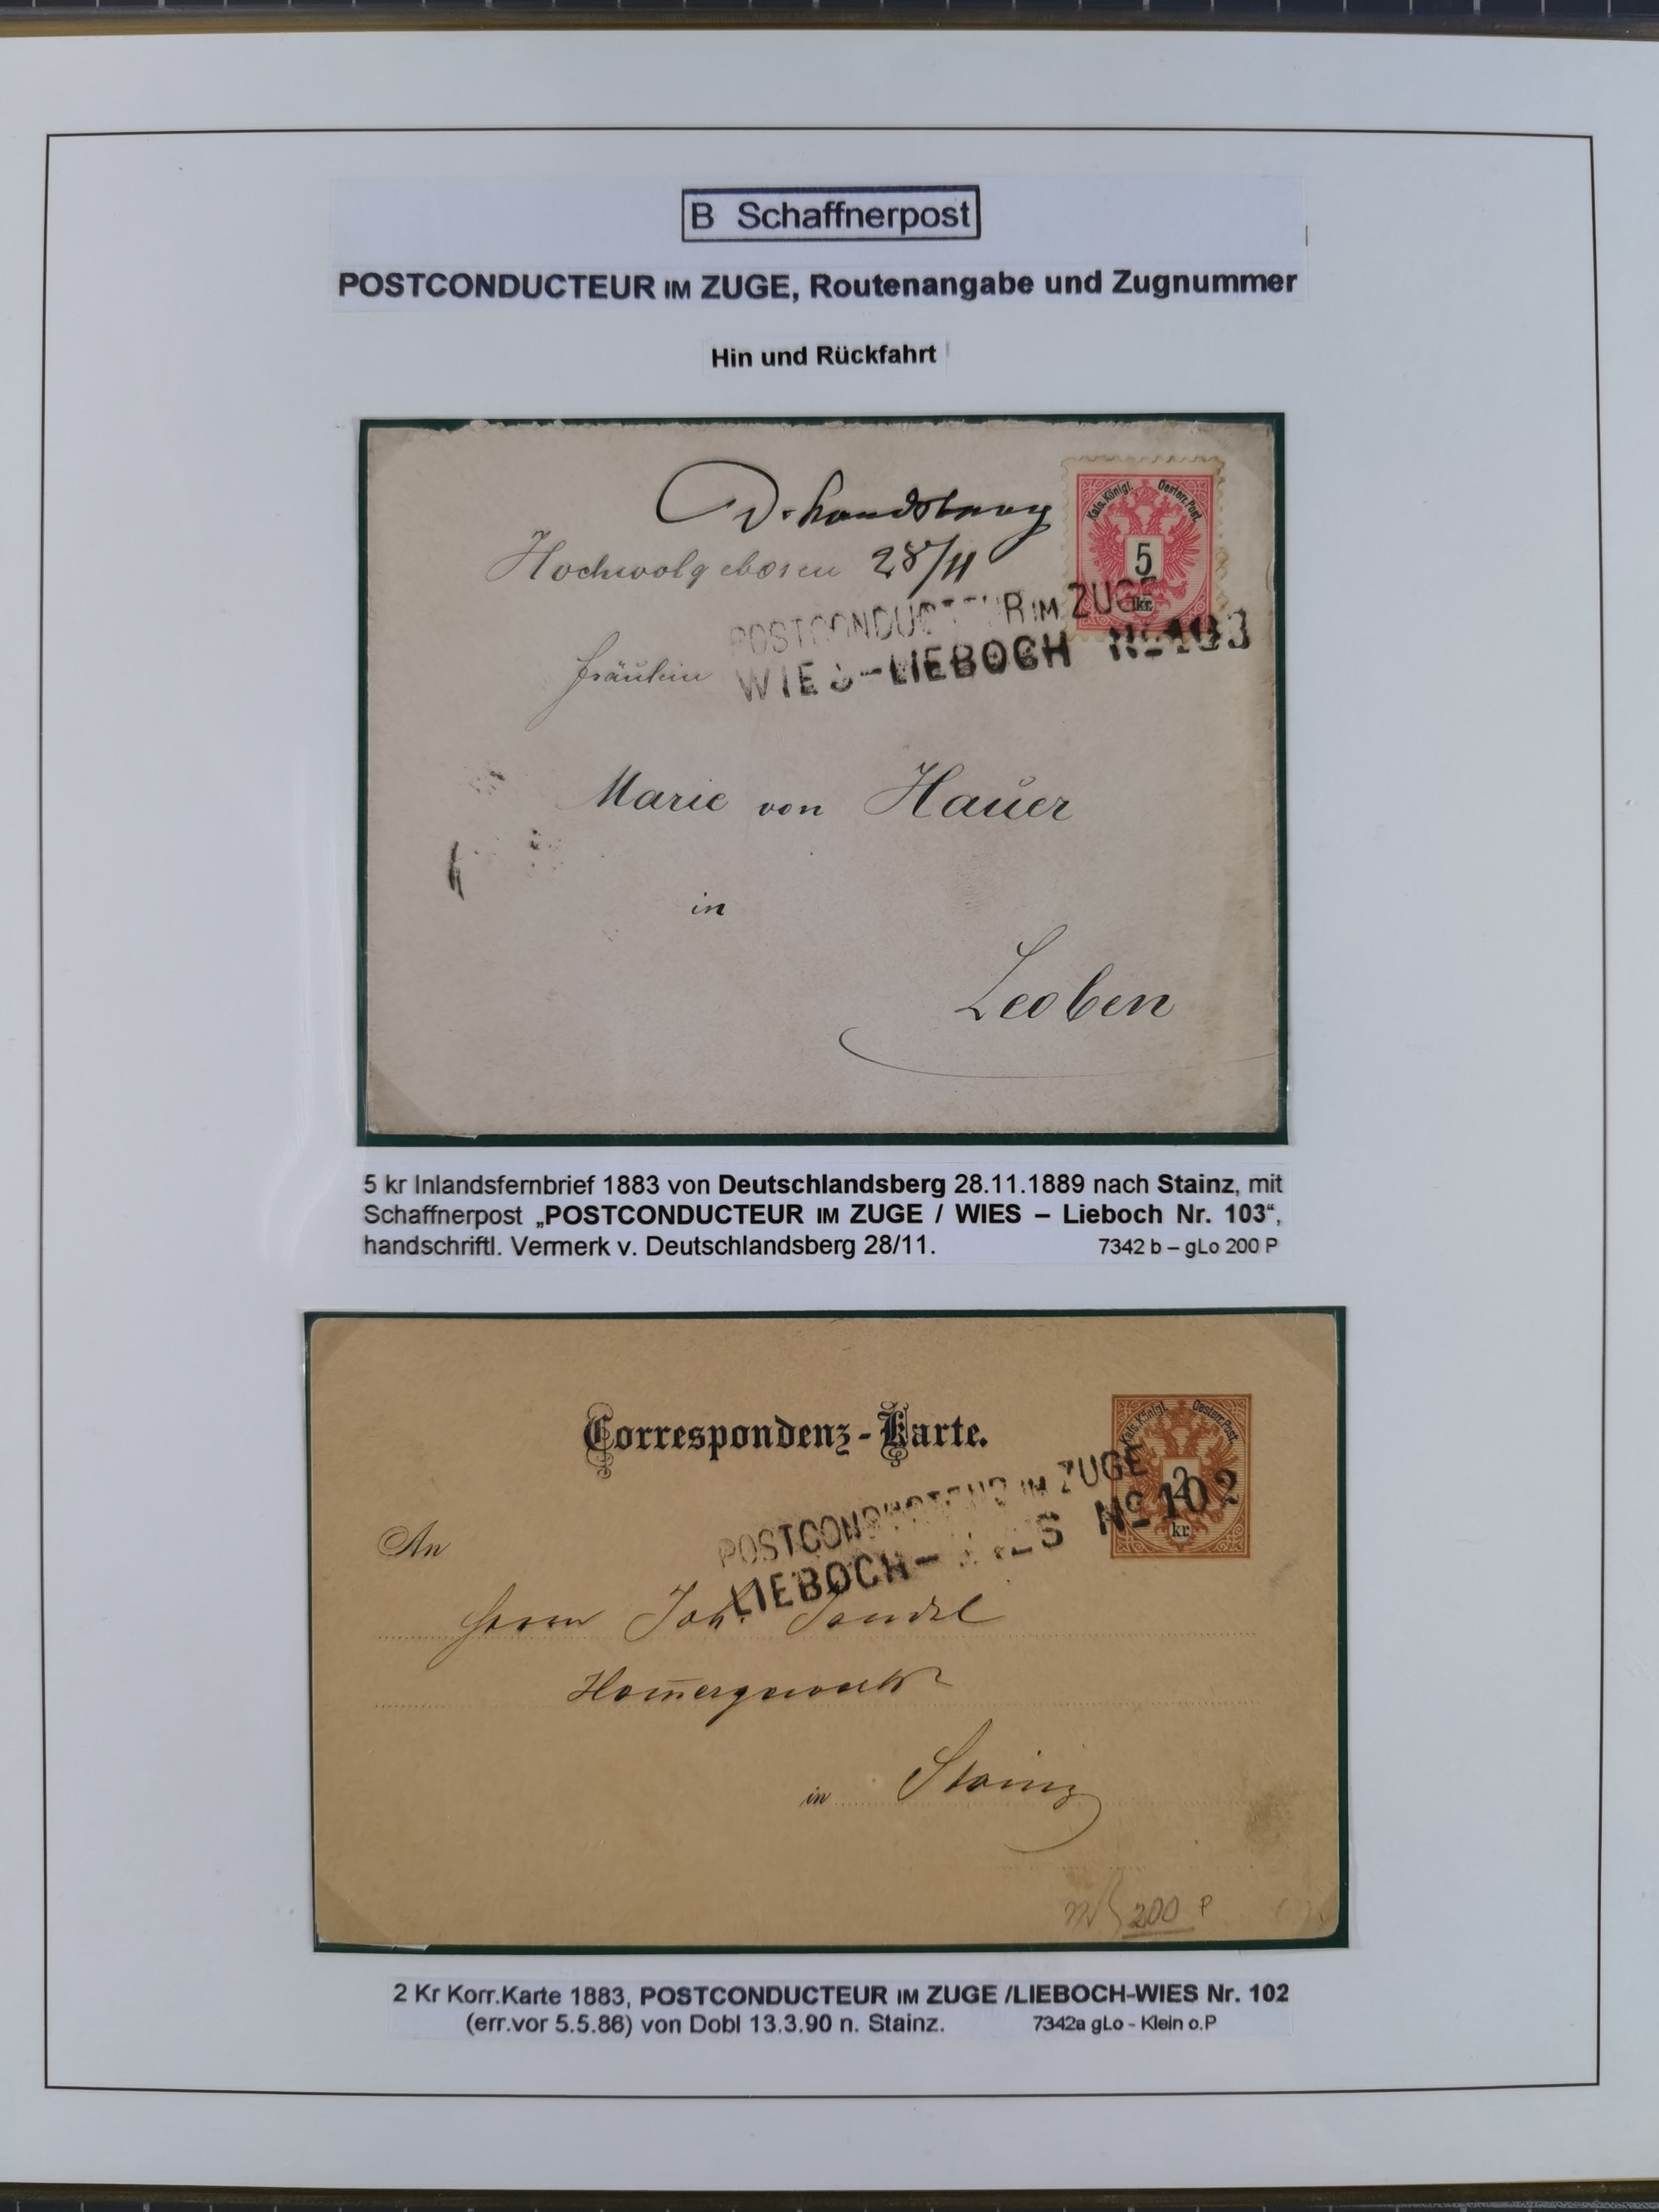 B Schaffnerpost
POSTCONDUCTEUR IM ZUGE, Routenangabe und Zugnummer
Hin und Rückfahrt
D. Landsberg
Kais. Königl. Oesterr. Post.
5
kr.
Hochwolgeboren 28/11
POSTCONDUCTEUR IM ZUGE
WIES-LIEBOCH No 103
Fräulein
Marie von Hauer
in
Leoben
5 kr Inlandsfernbrief 1883 von Deutschlandsberg 28.11.1889 nach Stainz, mit
Schaffnerpost „POSTCONDUCTEUR IM ZUGE / WIES – Lieboch Nr. 103“,
handschriftl. Vermerk v. Deutschlandsberg 28/11. 7342 b – gLo 200 P
Correspondenz-Karte.
Kais. Königl. Oesterr. Post.
2
kr.
POSTCONDUCTEUR IM ZUGE
LIEBOCH-WIES No 102
An
Herrn Joh.
in Stainz
200 P
2 Kr Korr.Karte 1883, POSTCONDUCTEUR IM ZUGE /LIEBOCH-WIES Nr. 102
(err.vor 5.5.86) von Dobl 13.3.90 n. Stainz. 7342a gLo - Klein o.P